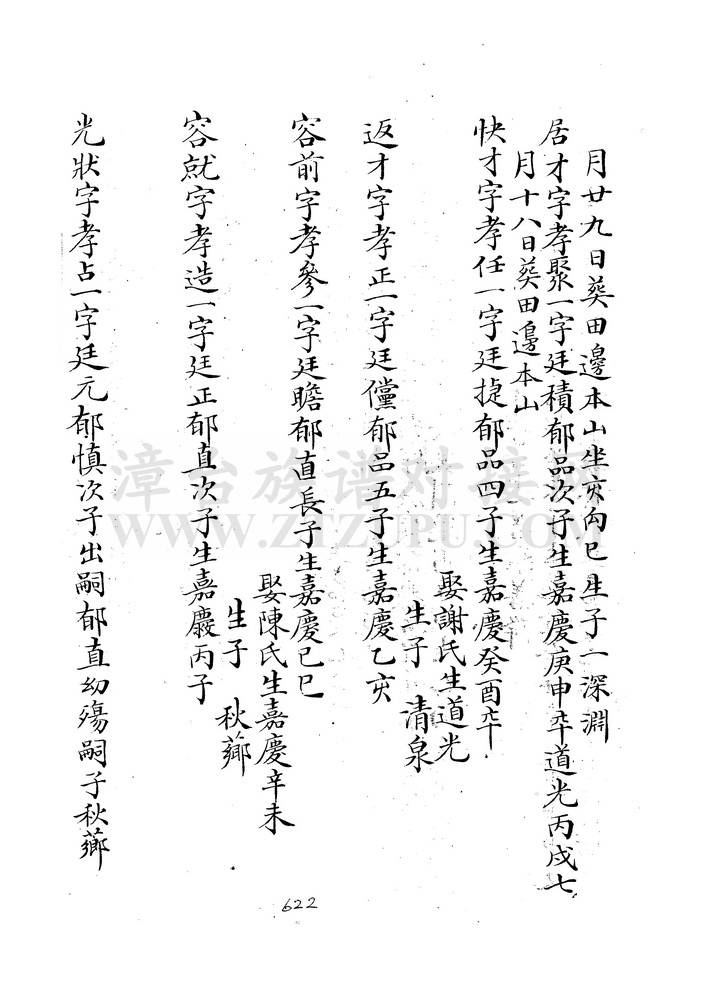 月廿九日葵田邊本山坐亥向巳生子一深淵
居才字孝聚一字廷積郁品次子生嘉慶庚申卒道光丙戌七
月十八日葵田邊本山
快才字孝任一字廷捷郁品四子生嘉慶癸酉卒
娶謝氏生道光
生子 清泉
返才字孝正一字廷儻郁品五子生嘉慶乙亥
容前字孝參一字廷瞻郁直長子生嘉慶己巳
娶陳氏生嘉慶辛未
生子 秋薌
容就字孝造一字廷正郁直次子生嘉慶丙子
光狀字孝占一字廷元郁慎次子出嗣郁直幼殤嗣子秋薌
622
漳台族谱对接
WWW.ZTZUPU.COM